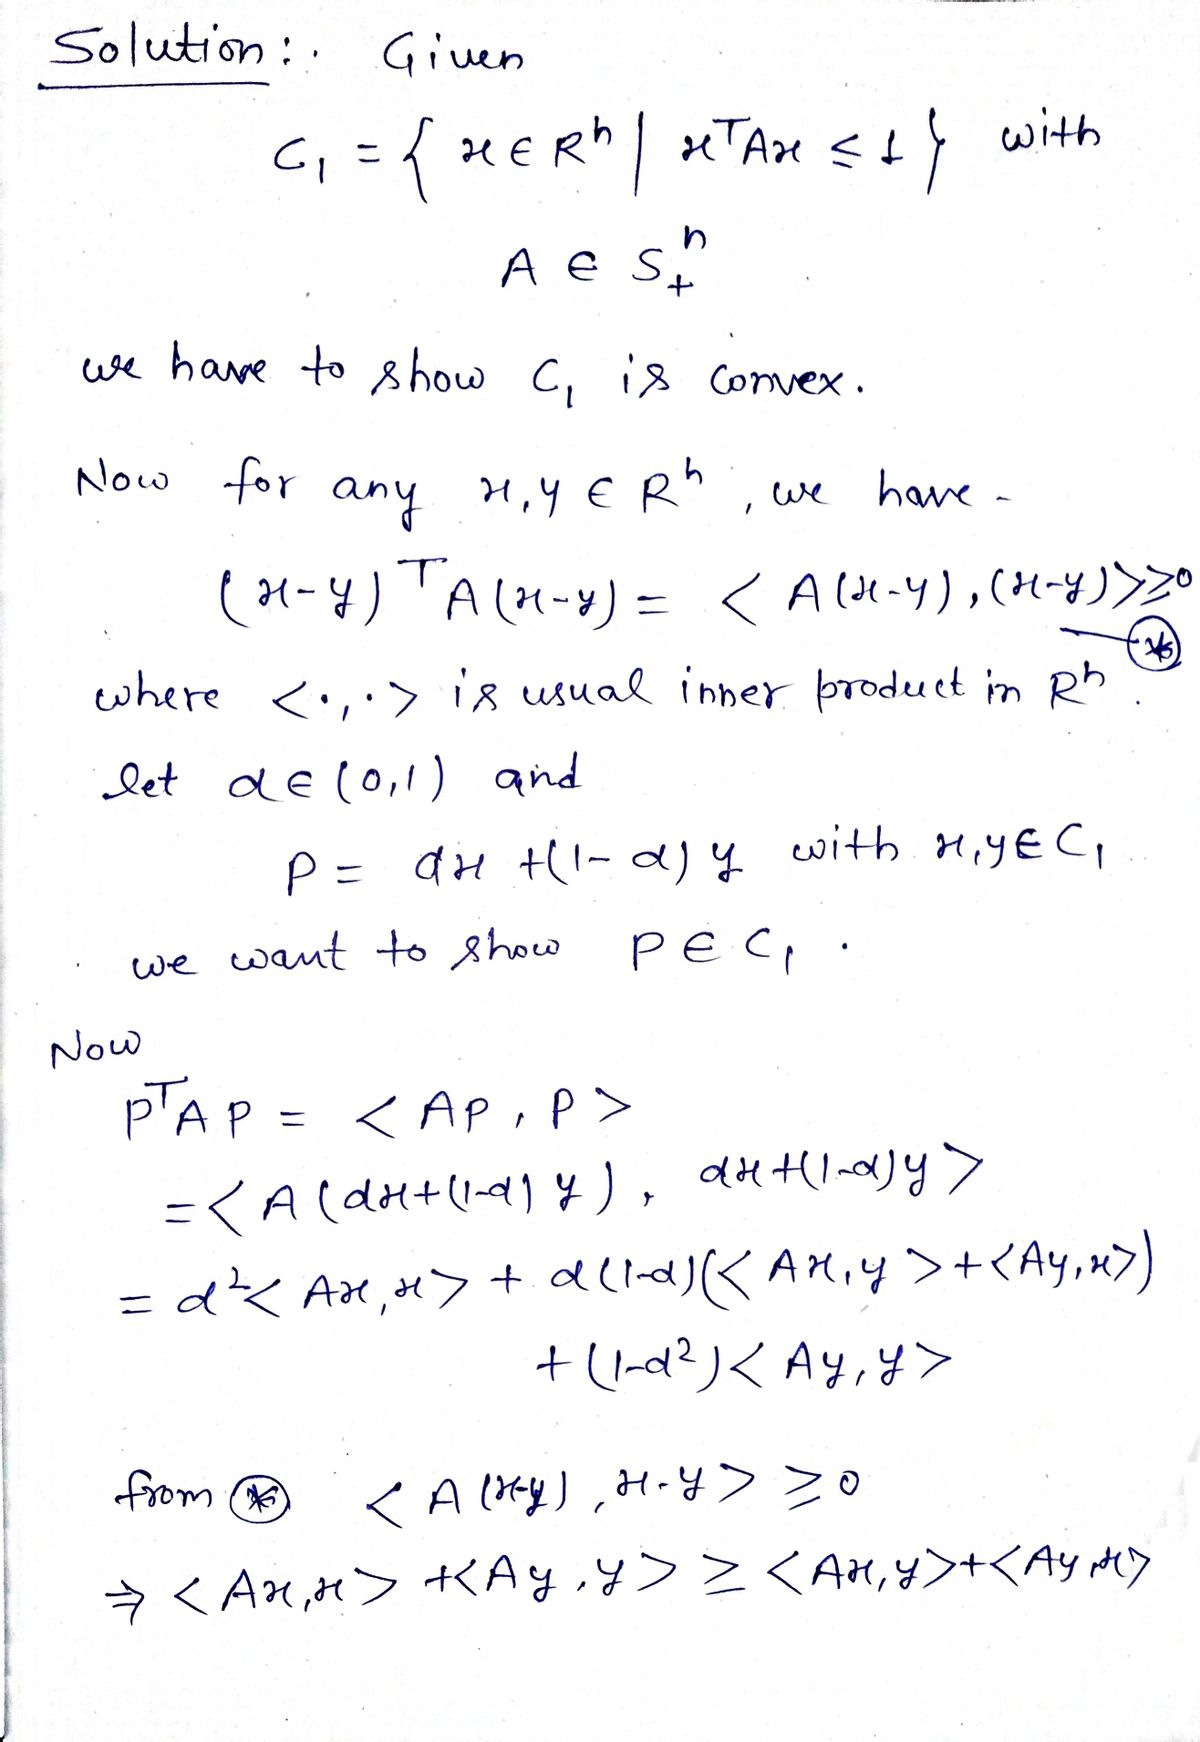 Solution:. Given
C₁ = { x ∈ Rⁿ | xᵀAx ≤ 1 } with
A ∈ S₊ⁿ
we have to show C₁ is convex.
Now for any x,y ∈ Rⁿ, we have -
(x-y)ᵀA(x-y) = < A(x-y), (x-y)> ≥0
—(*)
where <·,·> is usual inner product in Rⁿ.
let α ∈ (0,1) and
P = αx +(1-α)y with x,y ∈ C₁
we want to show P ∈ C₁ .
Now
PᵀAP = < AP, P >
= < A(αx+(1-α)y), αx+(1-α)y >
= α²< Ax,x> + α(1-α)(< Ax,y >+<Ay,x>)
+ (1-α²)< Ay,y>
from (*) < A(x-y), x-y > ≥ 0
⇒ < Ax,x> +<Ay,y> ≥ <Ax,y>+<Ay,x>